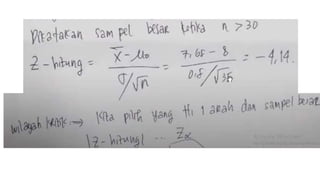 Dikatakan sampel besar ketika n > 30
Z-hitung = (x̄ - μ₀)/(σ/√n) = (7,65 - 8)/(0.8/√35) = -4,14.
wilayah kritik → Kita pilih yang H₁ 1 arah dan sampel besar
|Z-hitung| ... Zα